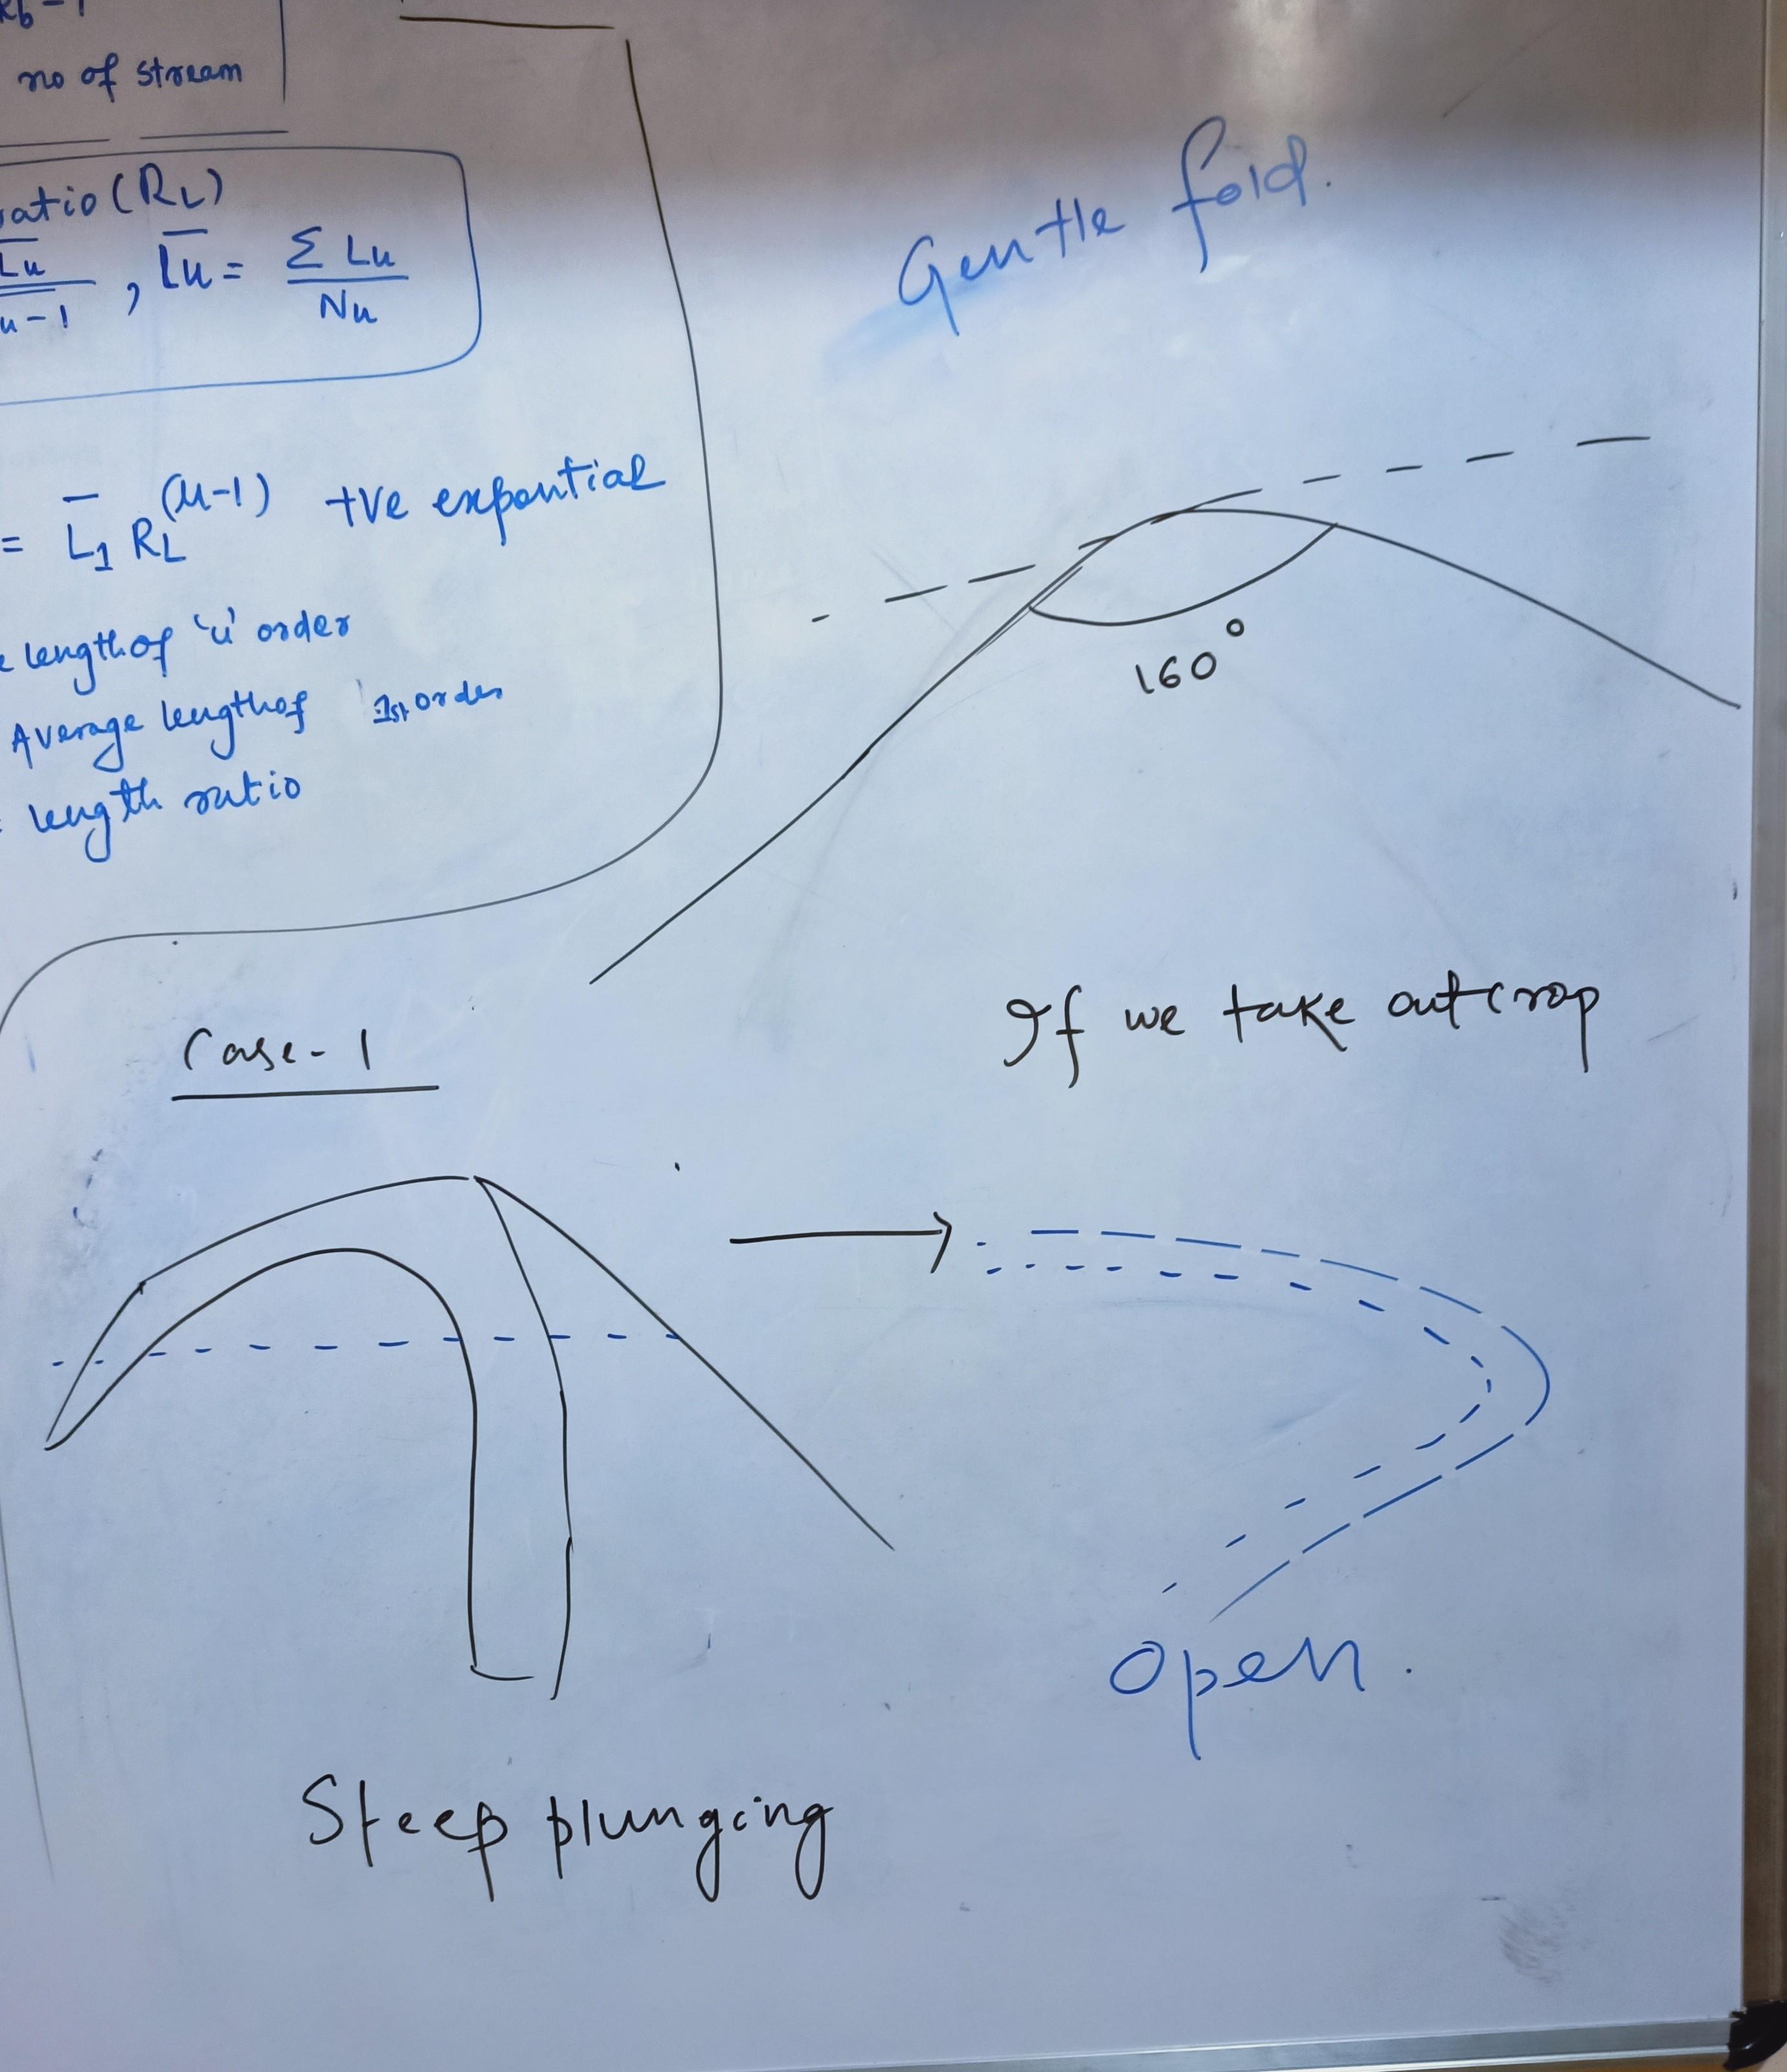 no of stream
ratio (RL)
Lu̅ / u-1 , L̅u = Σ Lu / Nu
= L̅1 RL^(u-1) +ve expontial
length of 'u' order
Average length of 1st order
length ratio
Gentle fold.
160°
If we take outcrop
Case-1
Open.
Steep plunging